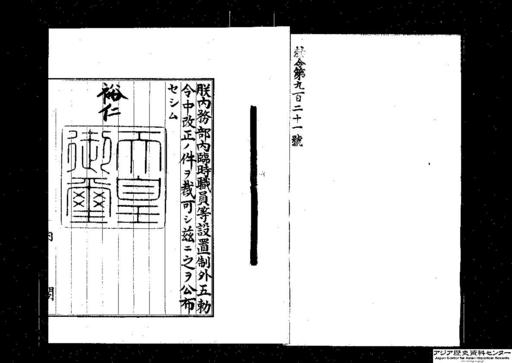 勅令第九百二十一號
朕內務部內臨時職員等設置制外五勅
令中改正ノ件ヲ裁可シ茲ニ之ヲ公布
セシム
裕仁
天皇
御璽
內
閣
アジア歴史資料センター
Japan Center for Asian Historical Records